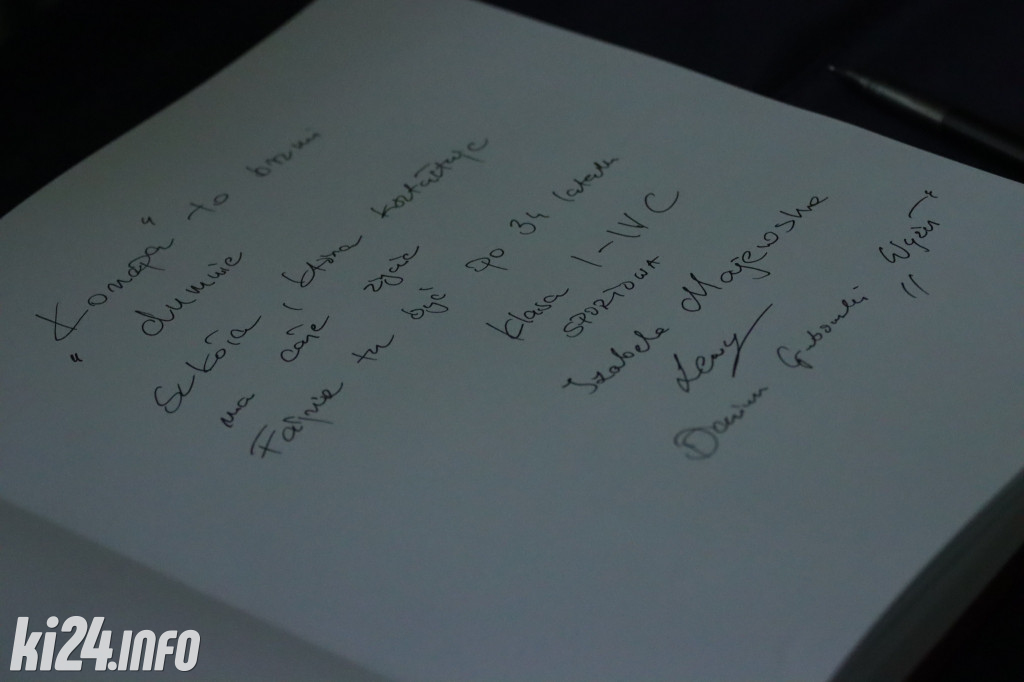 "Konopa" to brzmi
dumnie
Szkoła, która kształtuje
na całe życie
Fajnie tu być po 34 latach
klasa I-IV C
SPORTOWA
Izabela Majewska
Dariusz
ki24.info